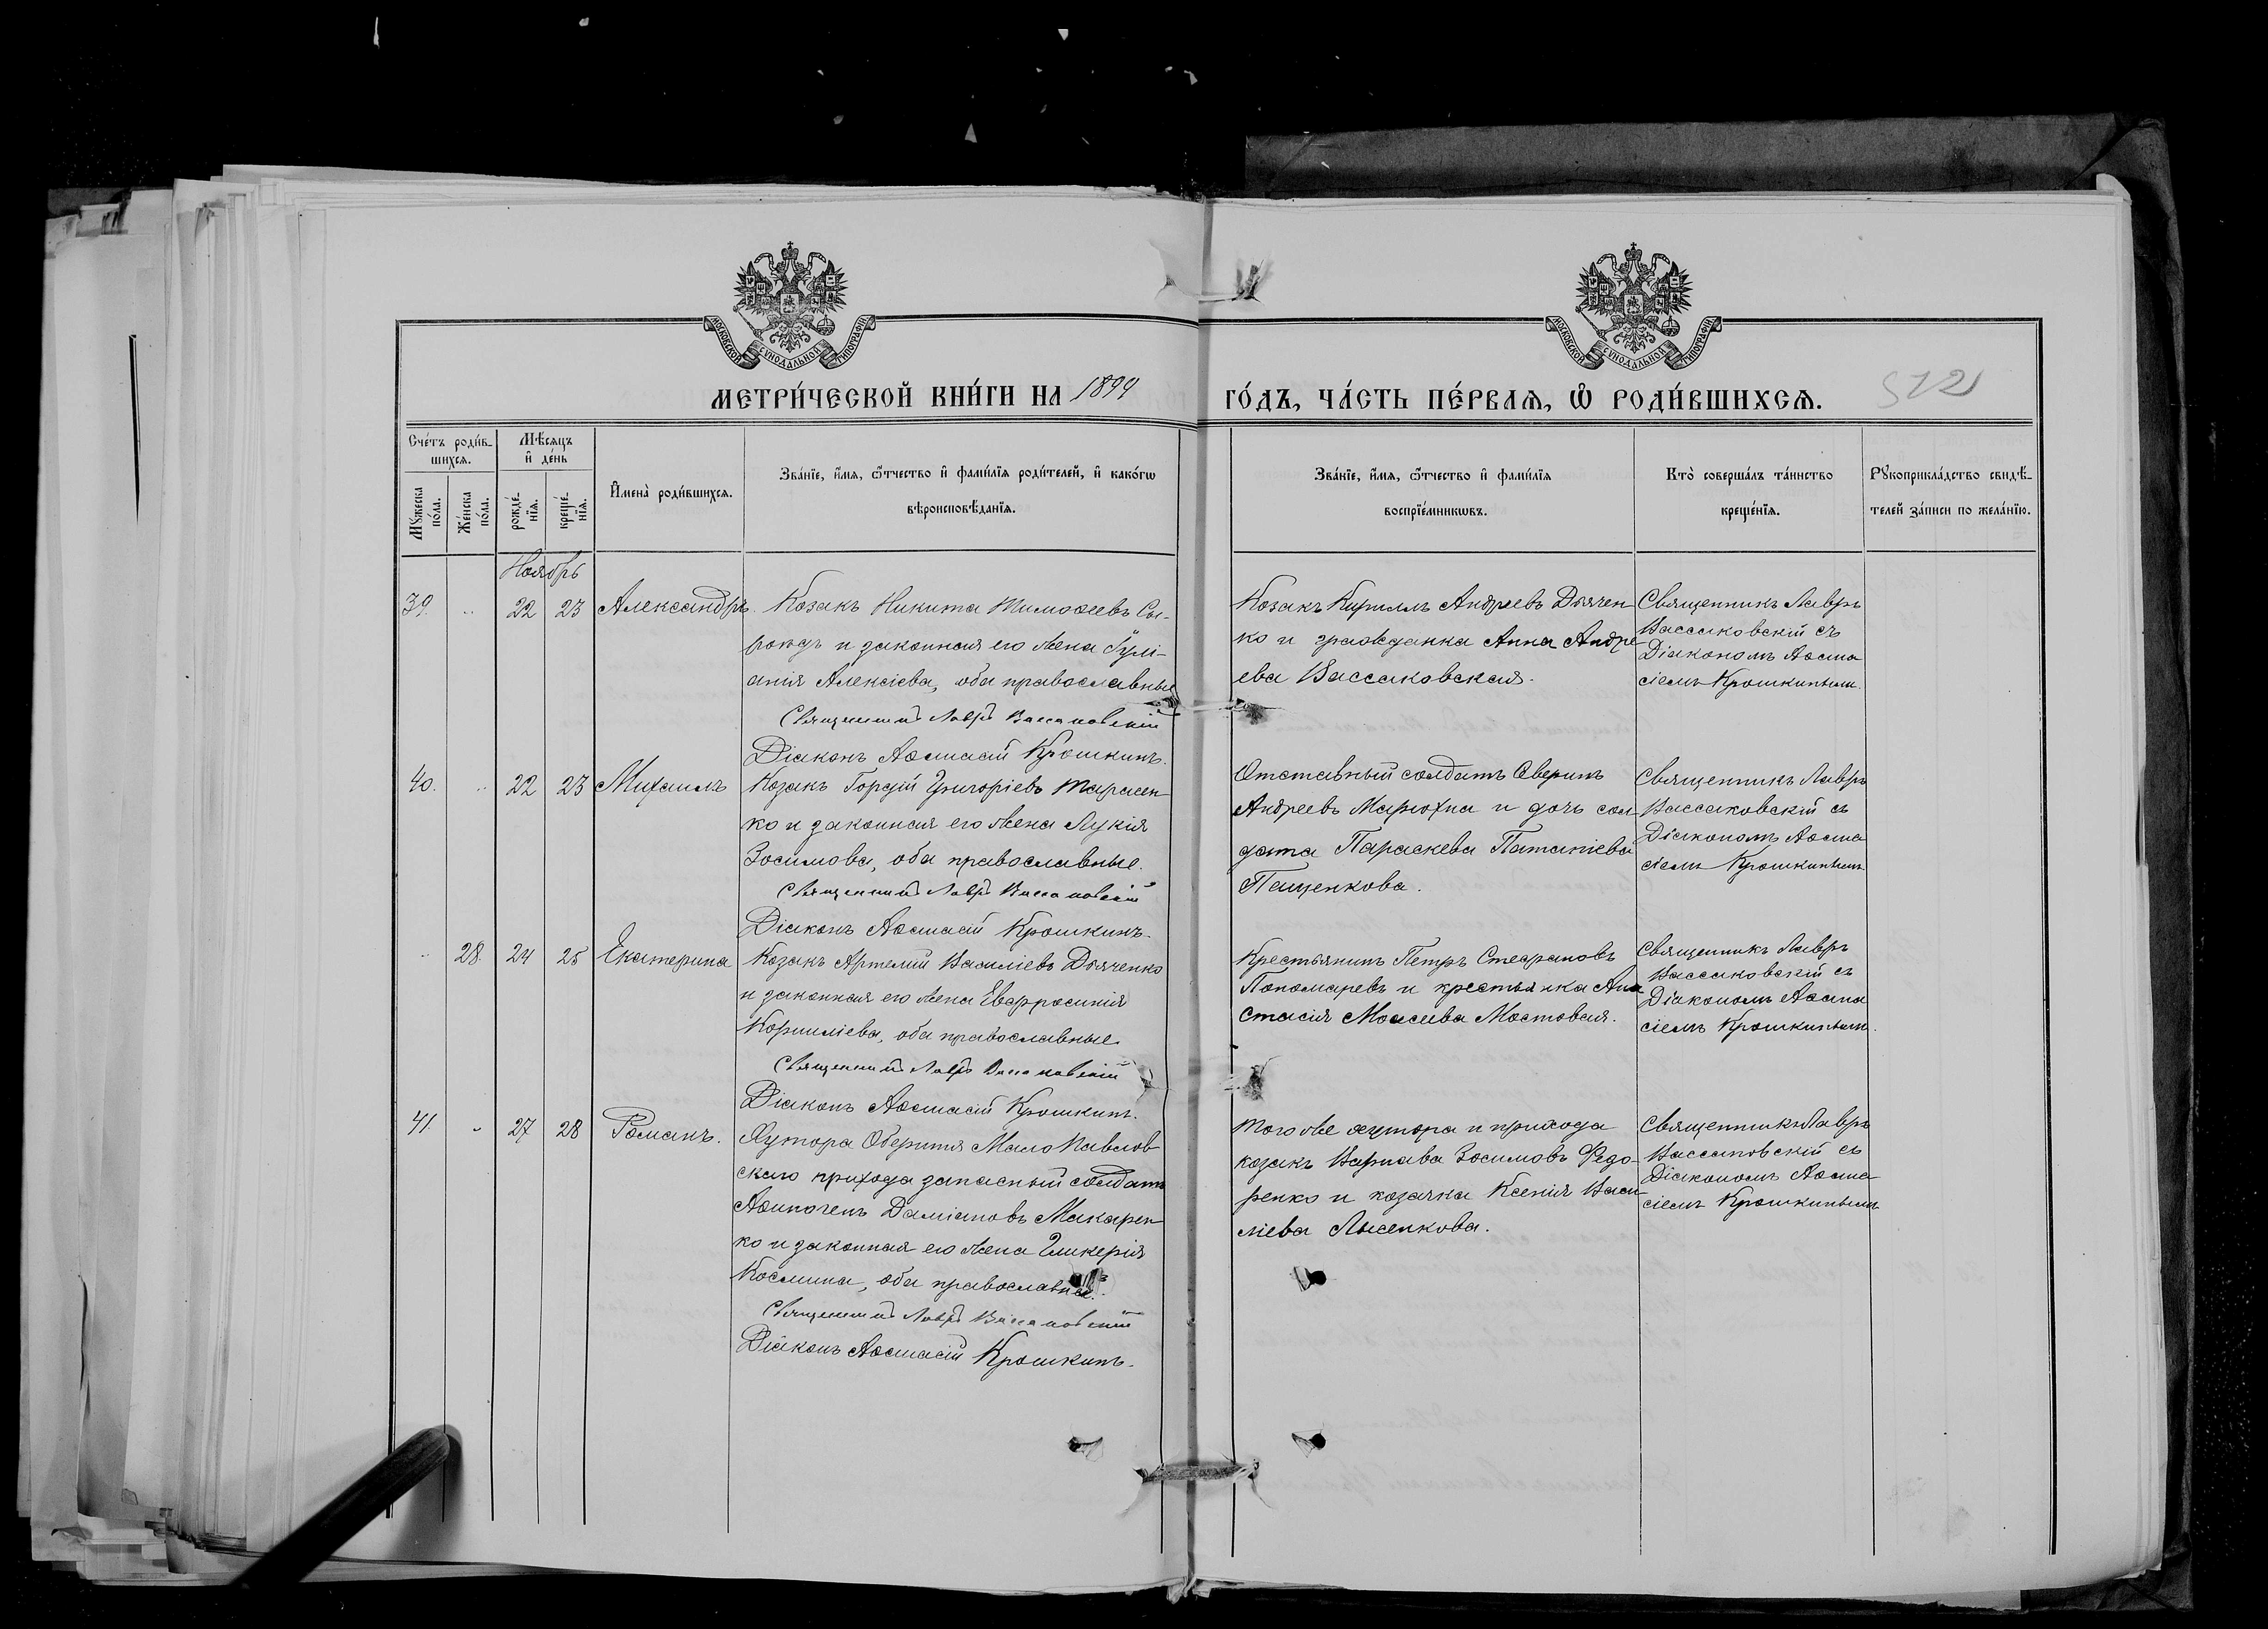 МОСКОВСКОЙ СУНОДАЛЬНОЙ ТИПОГРАФІИ
МОСКОВСКОЙ СУНОДАЛЬНОЙ ТИПОГРАФІИ
МЕТРИ́ЧЕСКОЙ КНИ́ГИ НА 1899
ГО́ДЪ, ЧА́СТЬ ПЕ́РВАЯ, Ѡ҆ РОДИ́ВШИХСЯ.
Сче́тъ роди́в-
шихся.
Мѣ́сяцъ
и҆ де́нь
Му́жеска
по́ла.
Же́нска
по́ла.
рожде́-
нїя.
креще́-
нїя.
И҆мена̀ роди́вшихся.
Зва́нїе, и҆́мя, ѻ҆́тчество и҆ фами́лїя роди́телей, и҆ како́гѡ
вѣроисповѣ́данїя.
Зва́нїе, и҆́мя, ѻ҆́тчество и҆ фами́лїя
воспрїе́мникѡвъ.
Кто̀ соверша́лъ та́инство
креще́нїя.
Рꙋкоприкла́дство свидѣ́-
телей за́писи по жела́нїю.
Ноябрь
39. 22 23 Александръ.
Козакъ Никита Тимоѳеевъ Сы-
и законная его жена Іулі-
анія Алексіева, оба православные
Священникъ Лавръ Вассаковскій
Діаконъ Аѳанасій Крошкинъ.
Козакъ Кириллъ Андреевъ Дьячен-
ко и гражданка Анна Андре-
ева Вассаковская.
Священникъ Лавръ
Вассаковскій съ
Діакономъ Аѳана
сіемъ Крошкинымъ.
40. 22 23 Михаилъ
Козакъ Гордій Григоріевъ Тарасен-
ко и законная его жена Лукія
Зосимова, оба православные.
Священникъ Лавръ Вассаковскій
Діаконъ Аѳанасій Крошкинъ.
Отставный солдатъ Аверкій
Андреевъ Марюхна и дочь сол-
дата Параскева Патапіева
Пащенкова.
Священникъ Лавръ
Вассаковскій съ
Діакономъ Аѳана
сіемъ Крошкинымъ
28. 24 25 Екатерина
Козакъ Артемій Василіевъ Дьяченко
и законная его жена Евфросинія
Корниліева, оба православные.
Священникъ Лавръ Вассаковскій
Діаконъ Аѳанасій Крошкинъ.
Крестьянинъ Петръ Стефановъ
Пономаревъ и крестьянка Ана
стасія Моисеева Мостовая.
Священникъ Лавръ
Вассаковскій съ
Діакономъ Аѳана
сіемъ Крошкинымъ.
41. 27 28 Романъ.
Хутора Мало Павлов-
скаго прихода запасный солдатъ
Даміановъ Макарен-
ко и законная его жена Гликерія
Космина, оба православные.
Священникъ Лавръ Вассаковскій
Діаконъ Аѳанасій Крошкинъ.
Того же хутора и прихода
козакъ Варнава Зосимовъ Федо-
ренко и козачка Ксенія Васи-
ліева Лысенкова.
Священникъ Лавръ
Вассаковскій съ
Діакономъ Аѳана-
сіемъ Крошкинымъ